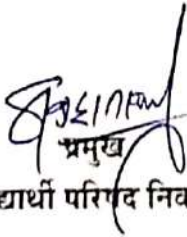 प्रमुख
द्यार्थी परिषद निव